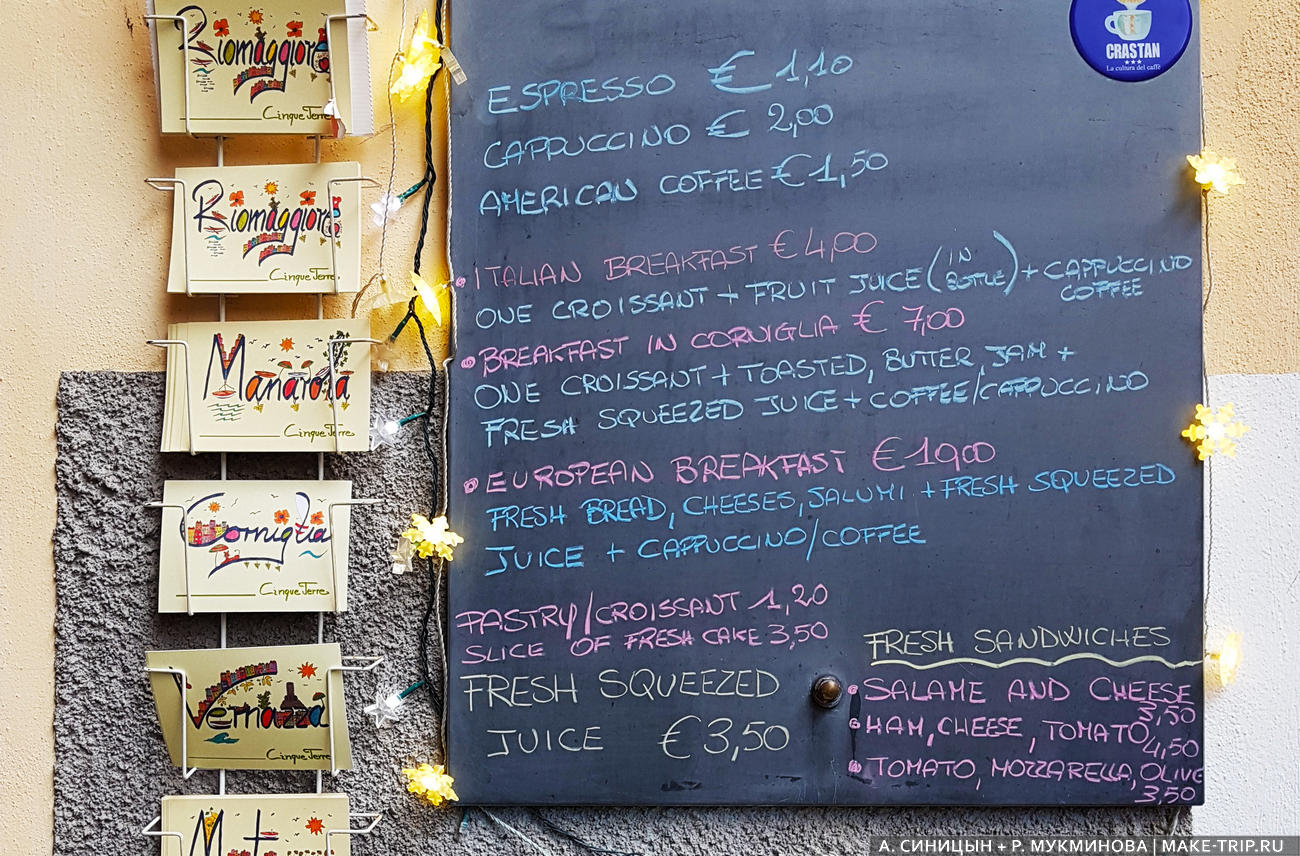 Riomaggiore
Cinque Terre
Riomaggiore
Cinque Terre
Manarola
Cinque Terre
Corniglia
Cinque Terre
Vernazza
Cinque Terre
CRASTAN
La cultura del caffè
ESPRESSO € 1,10
CAPPUCCINO € 2,00
AMERICAN COFFEE € 1,50
ITALIAN BREAKFAST € 4,00
ONE CROISSANT + FRUIT JUICE (IN BOTTLE) + CAPPUCCINO
COFFEE
BREAKFAST IN CORNIGLIA € 7,00
ONE CROISSANT + TOASTED, BUTTER, JAM +
FRESH SQUEEZED JUICE + COFFEE/CAPPUCCINO
EUROPEAN BREAKFAST € 10,00
FRESH BREAD, CHEESES, SALUMI + FRESH SQUEEZED
JUICE + CAPPUCCINO/COFFEE
PASTRY/CROISSANT 1,20
SLICE OF FRESH CAKE 3,50
FRESH SQUEEZED
JUICE € 3,50
FRESH SANDWICHES
SALAME AND CHEESE
3,50
HAM, CHEESE, TOMATO
4,50
TOMATO, MOZZARELLA, OLIVE
3,50
А. СИНИЦЫН + Р. МУКМИНОВА | MAKE-TRIP.RU